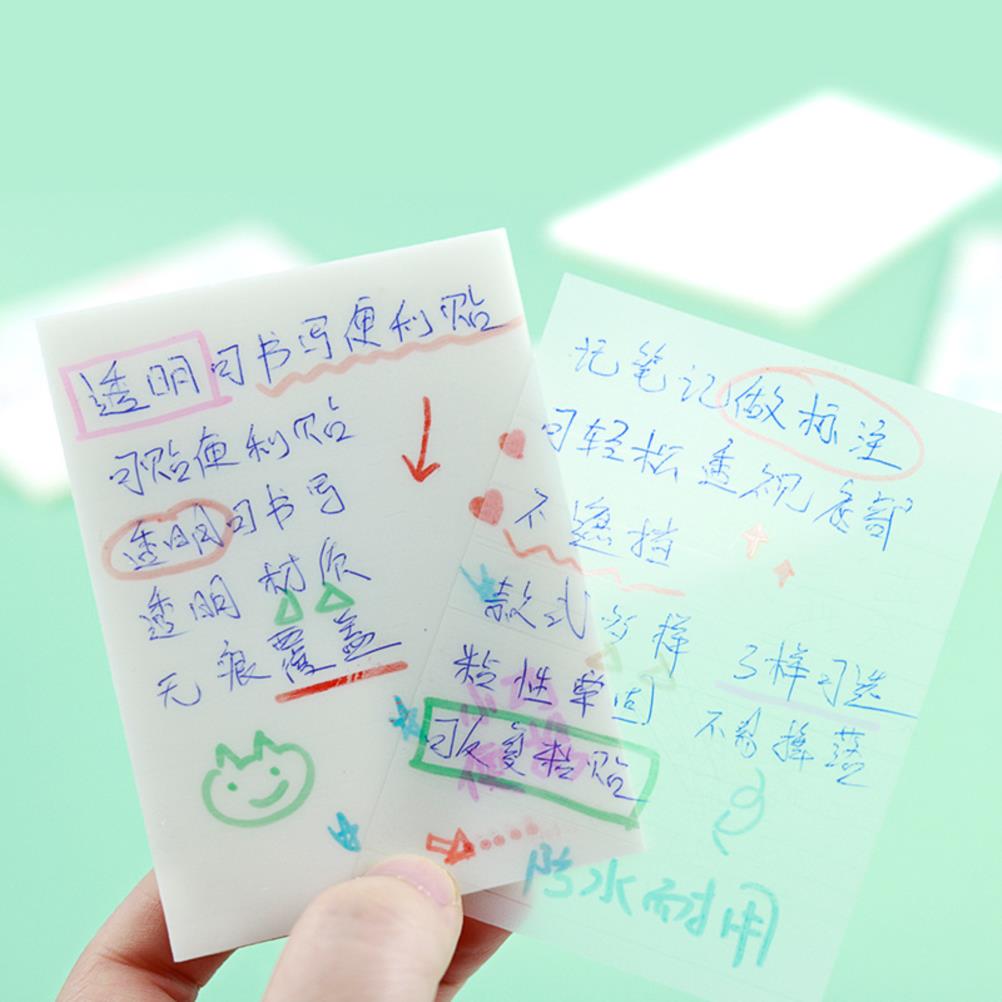 透明可书写便利贴
可贴便利贴
透明可书写
透明材质
无痕覆盖
记笔记做标注
可轻松透视底部
不遮挡
款式多样
3样可选
粘性牢固
不易掉落
可反复粘贴
防水耐用